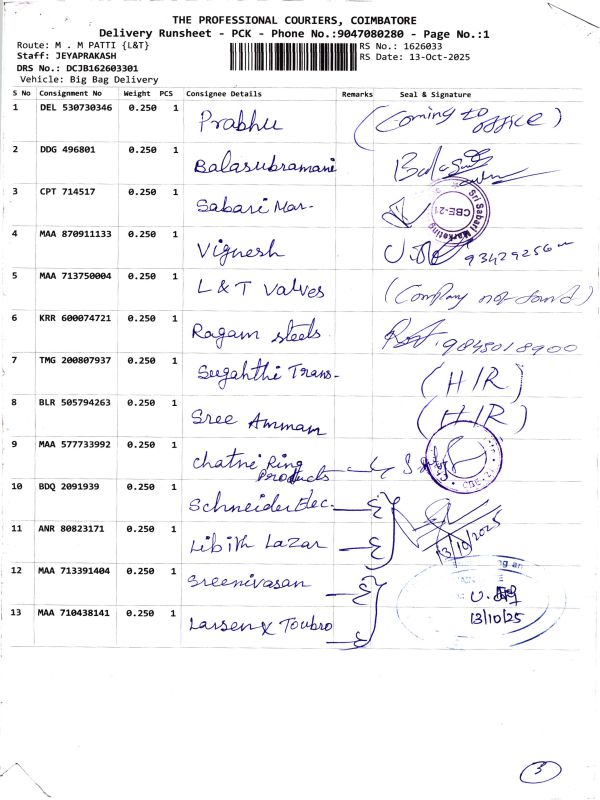 THE PROFESSIONAL COURIERS, COIMBATORE
Delivery Runsheet - PCK - Phone No.:9047080280 - Page No.:1
Route: M . M PATTI {L&T} RS No.: 1626033
Staff: JEYAPRAKASH RS Date: 13-Oct-2025
DRS No.: DCJB162603301
Vehicle: Big Bag Delivery
S No Consignment No Weight PCS Consignee Details Remarks Seal & Signature
1 DEL 530730346 0.250 1 Prabhu (Coming to office)
2 DDG 496801 0.250 1 Balasubramani
3 CPT 714517 0.250 1 Sabari Mar- Sri Sabari Marketing CBE-21
4 MAA 870911133 0.250 1 Vignesh
5 MAA 713750004 0.250 1 L & T Valves (Company not found)
6 KRR 600074721 0.250 1 Ragam steels 9845018900
7 TMG 200807937 0.250 1 Sugahthi Trans- (H/R)
8 BLR 505794263 0.250 1 Sree Amman (H/R)
9 MAA 577733992 0.250 1 Chatne Ring Products CBE-21
10 BDQ 2091939 0.250 1 Schneider Elec-
11 ANR 80823171 0.250 1 Libith Lazar 13/10/2025
12 MAA 713391404 0.250 1 Sreenivasan
13 MAA 710438141 0.250 1 Larsen & Toubro 13/10/25
3